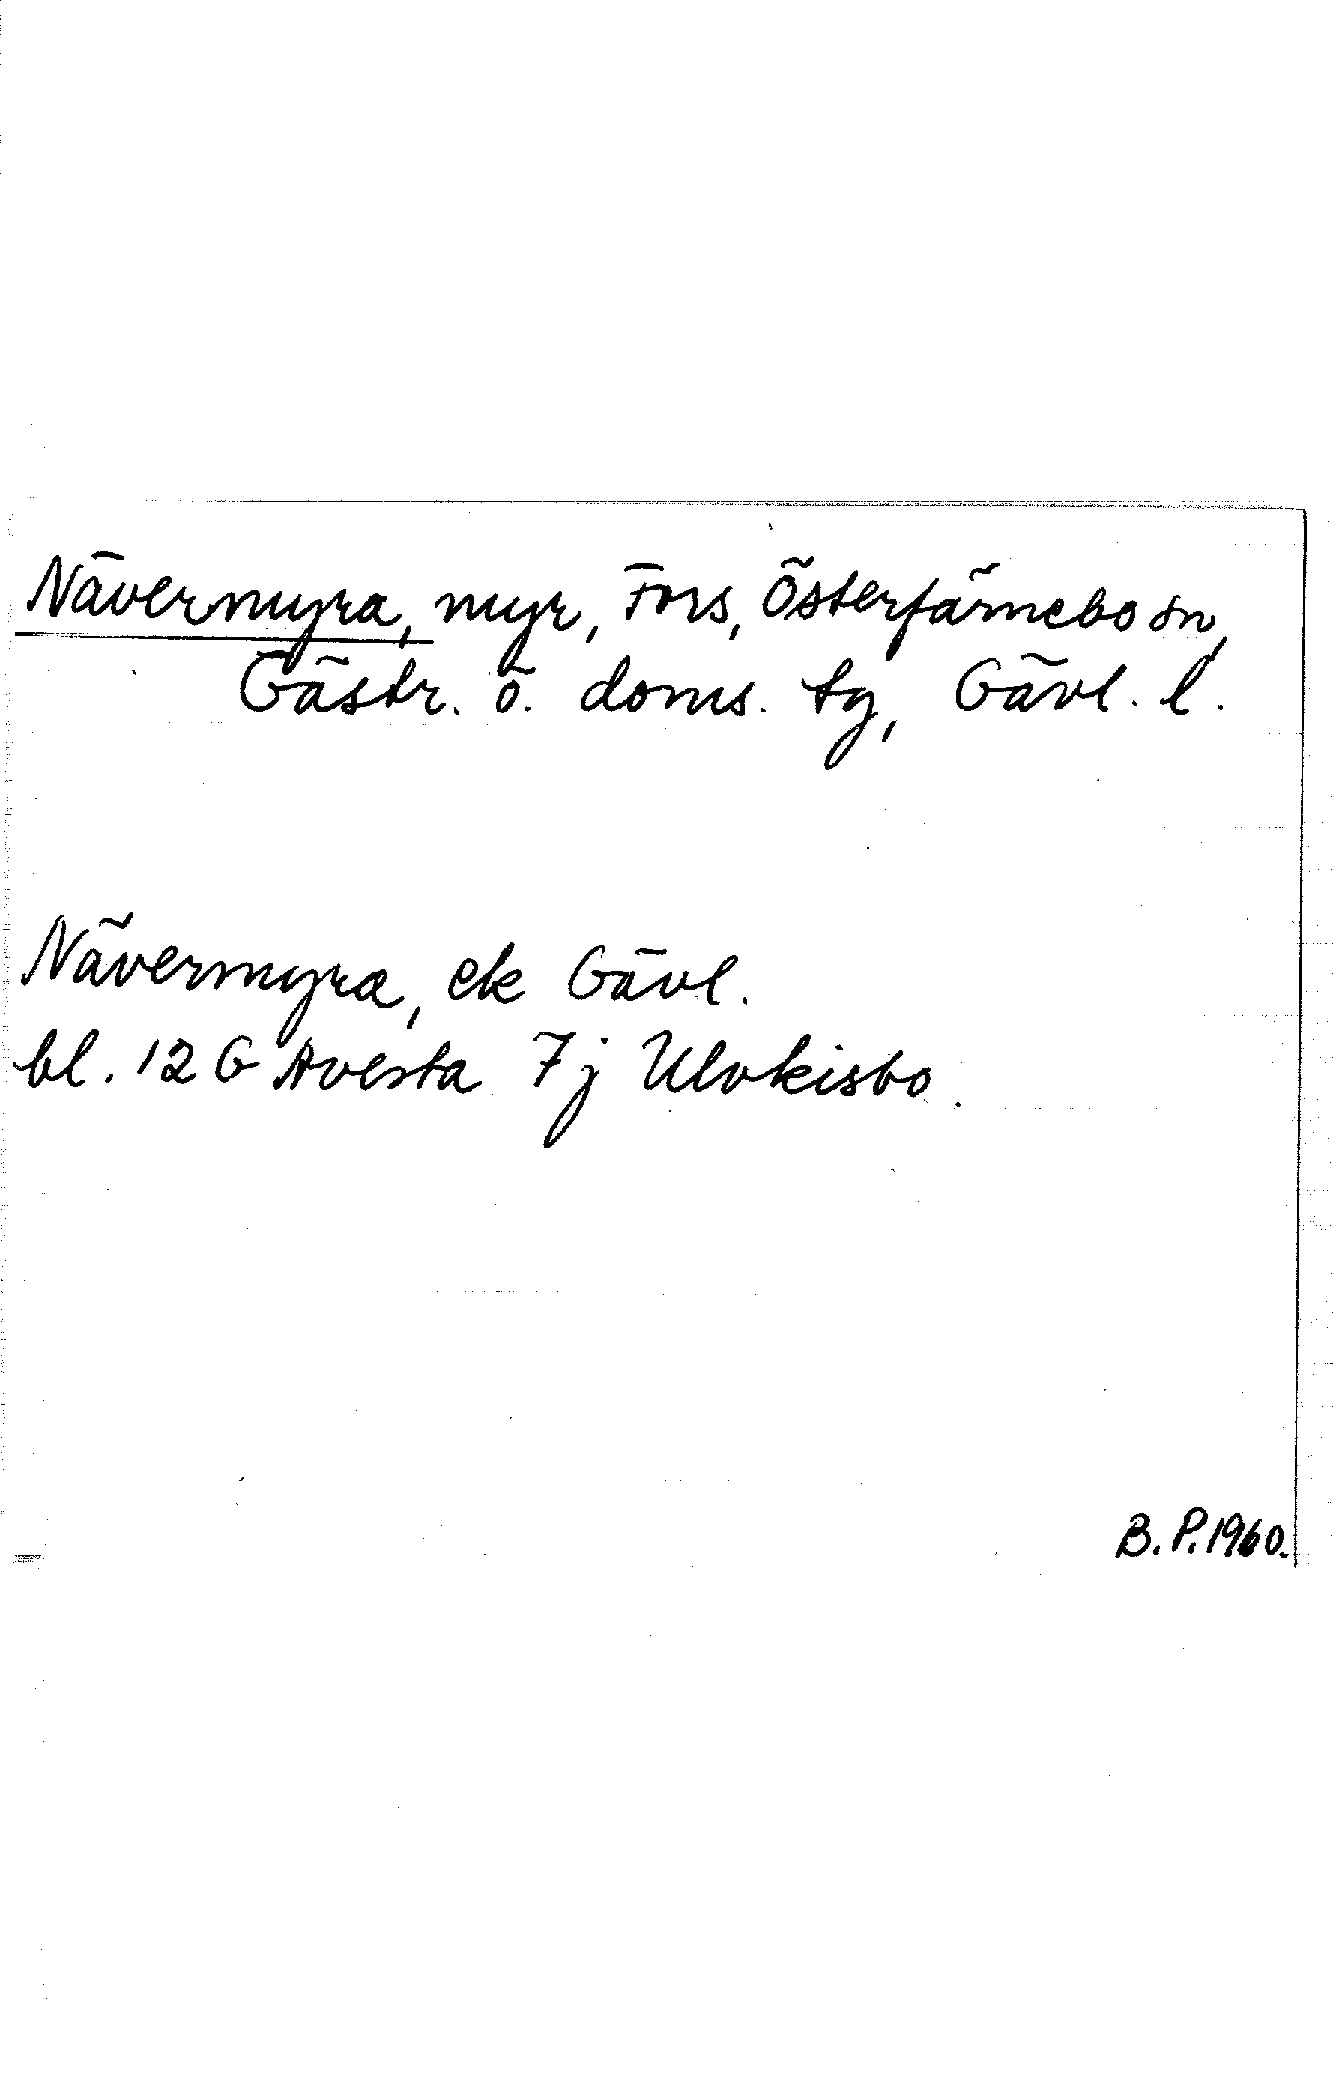 Nävermyra, myr, Fors, Österfärnebo sn,
Gästr. ö. doms. tg, Gävl. l.
Nävermyra, ek Gävl.
bl. 12 G Avesta 7j Ulvkisbo.
B.P. 1960.